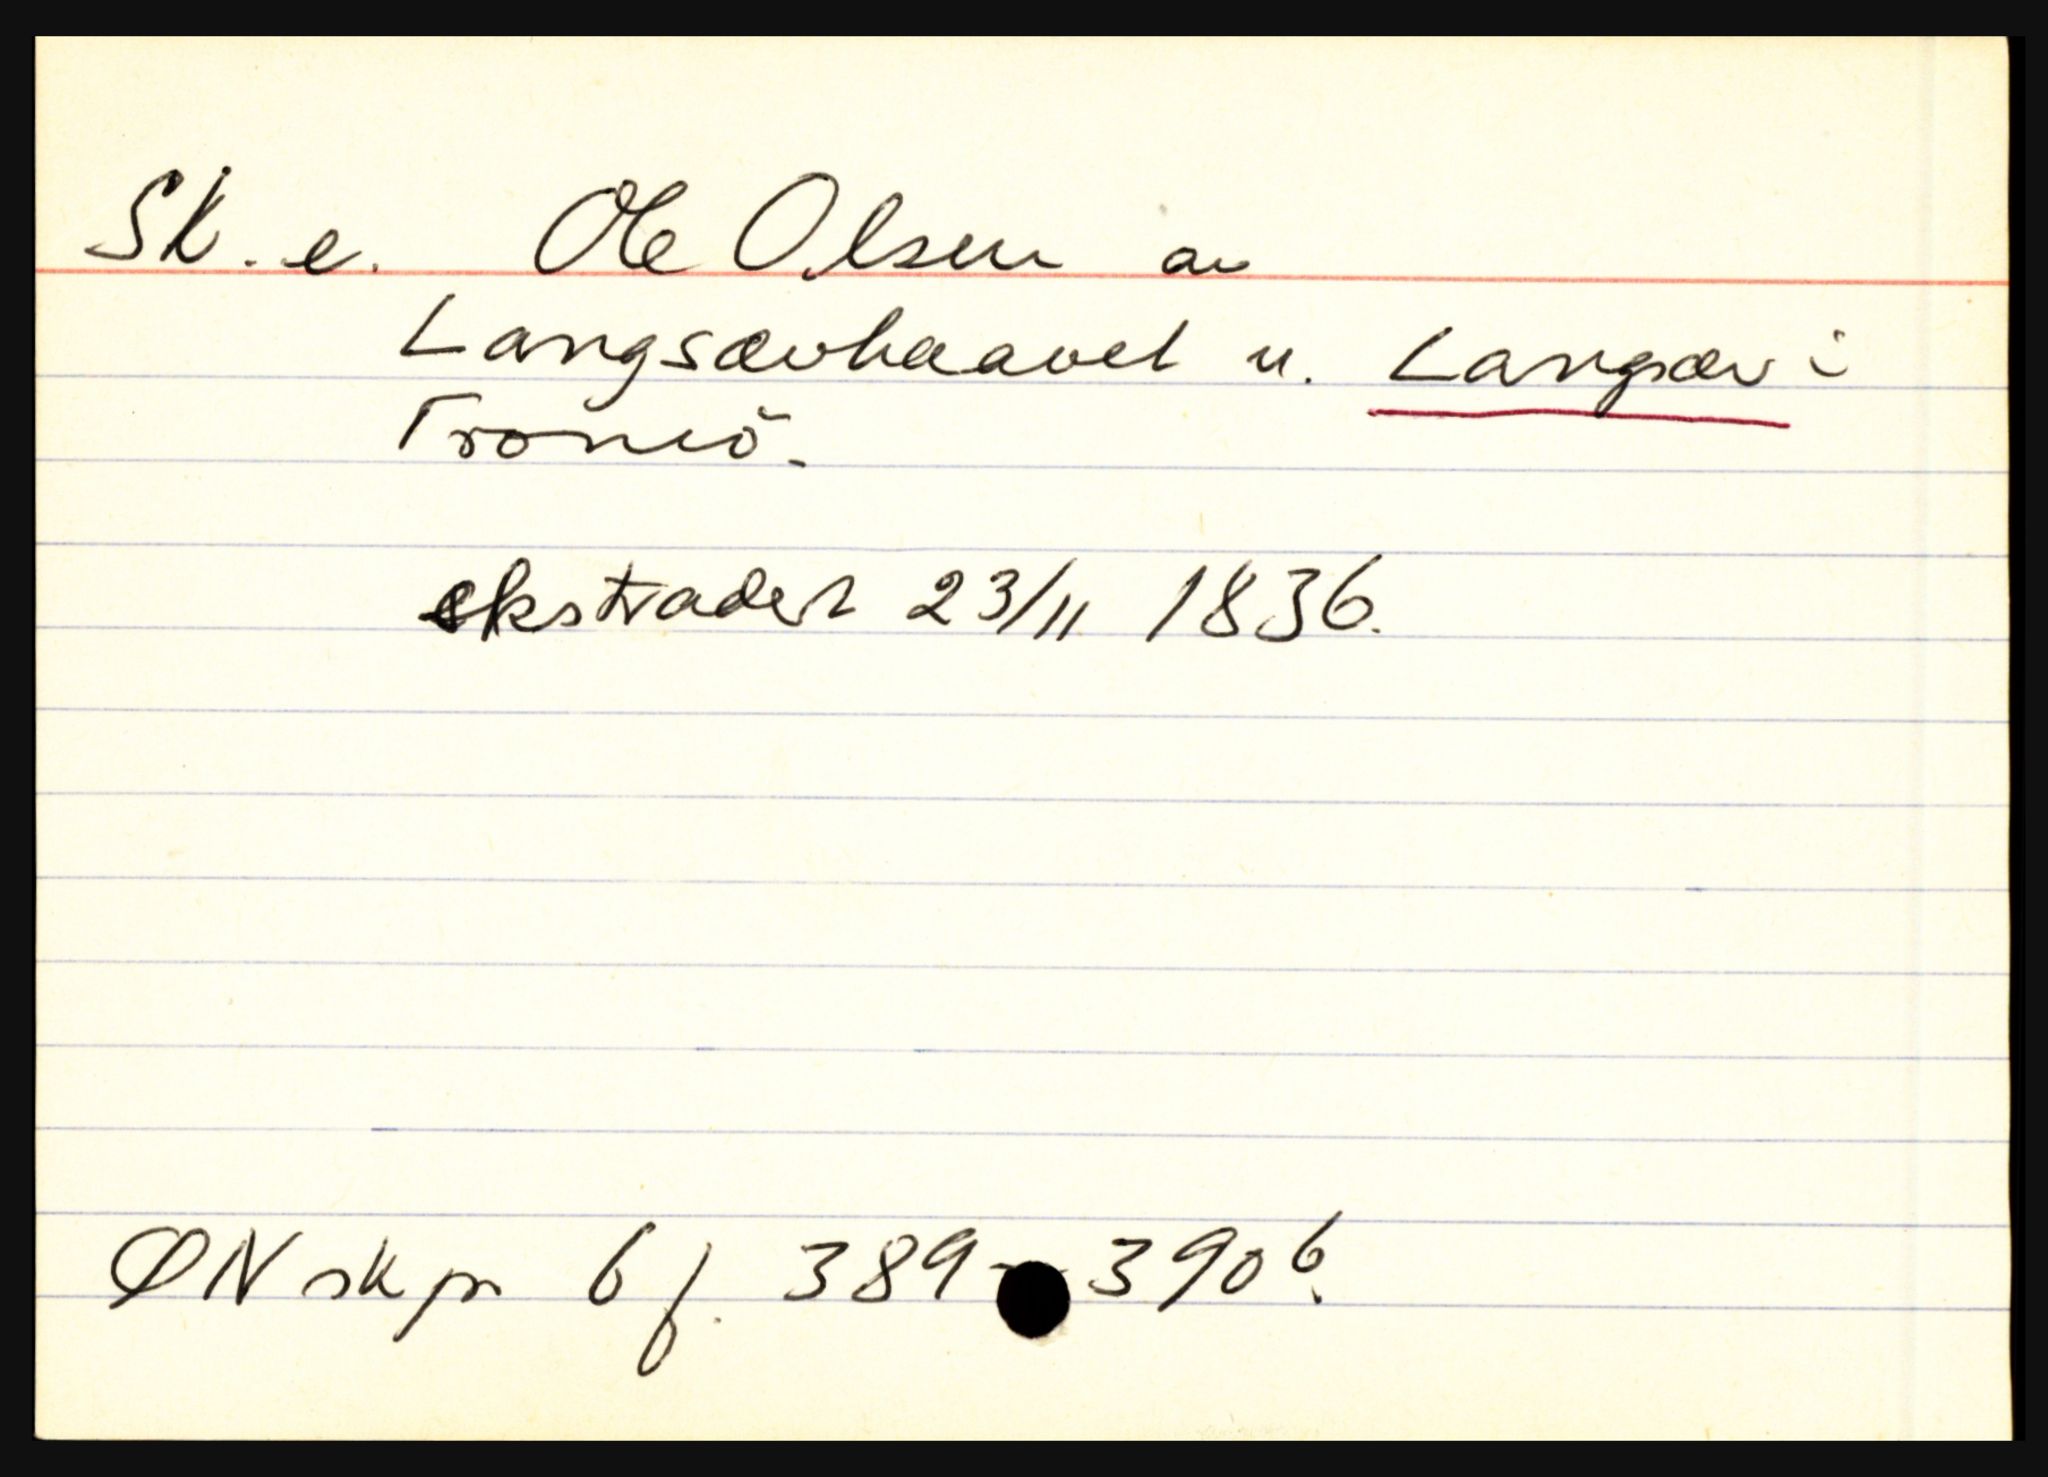 Sk. e. Ole Olsen av
Langsævhaavet u. Langsæv i
Tromö.
ekstradert 23/11 1836.
ØN skpr 6 f. 389 - 390b.